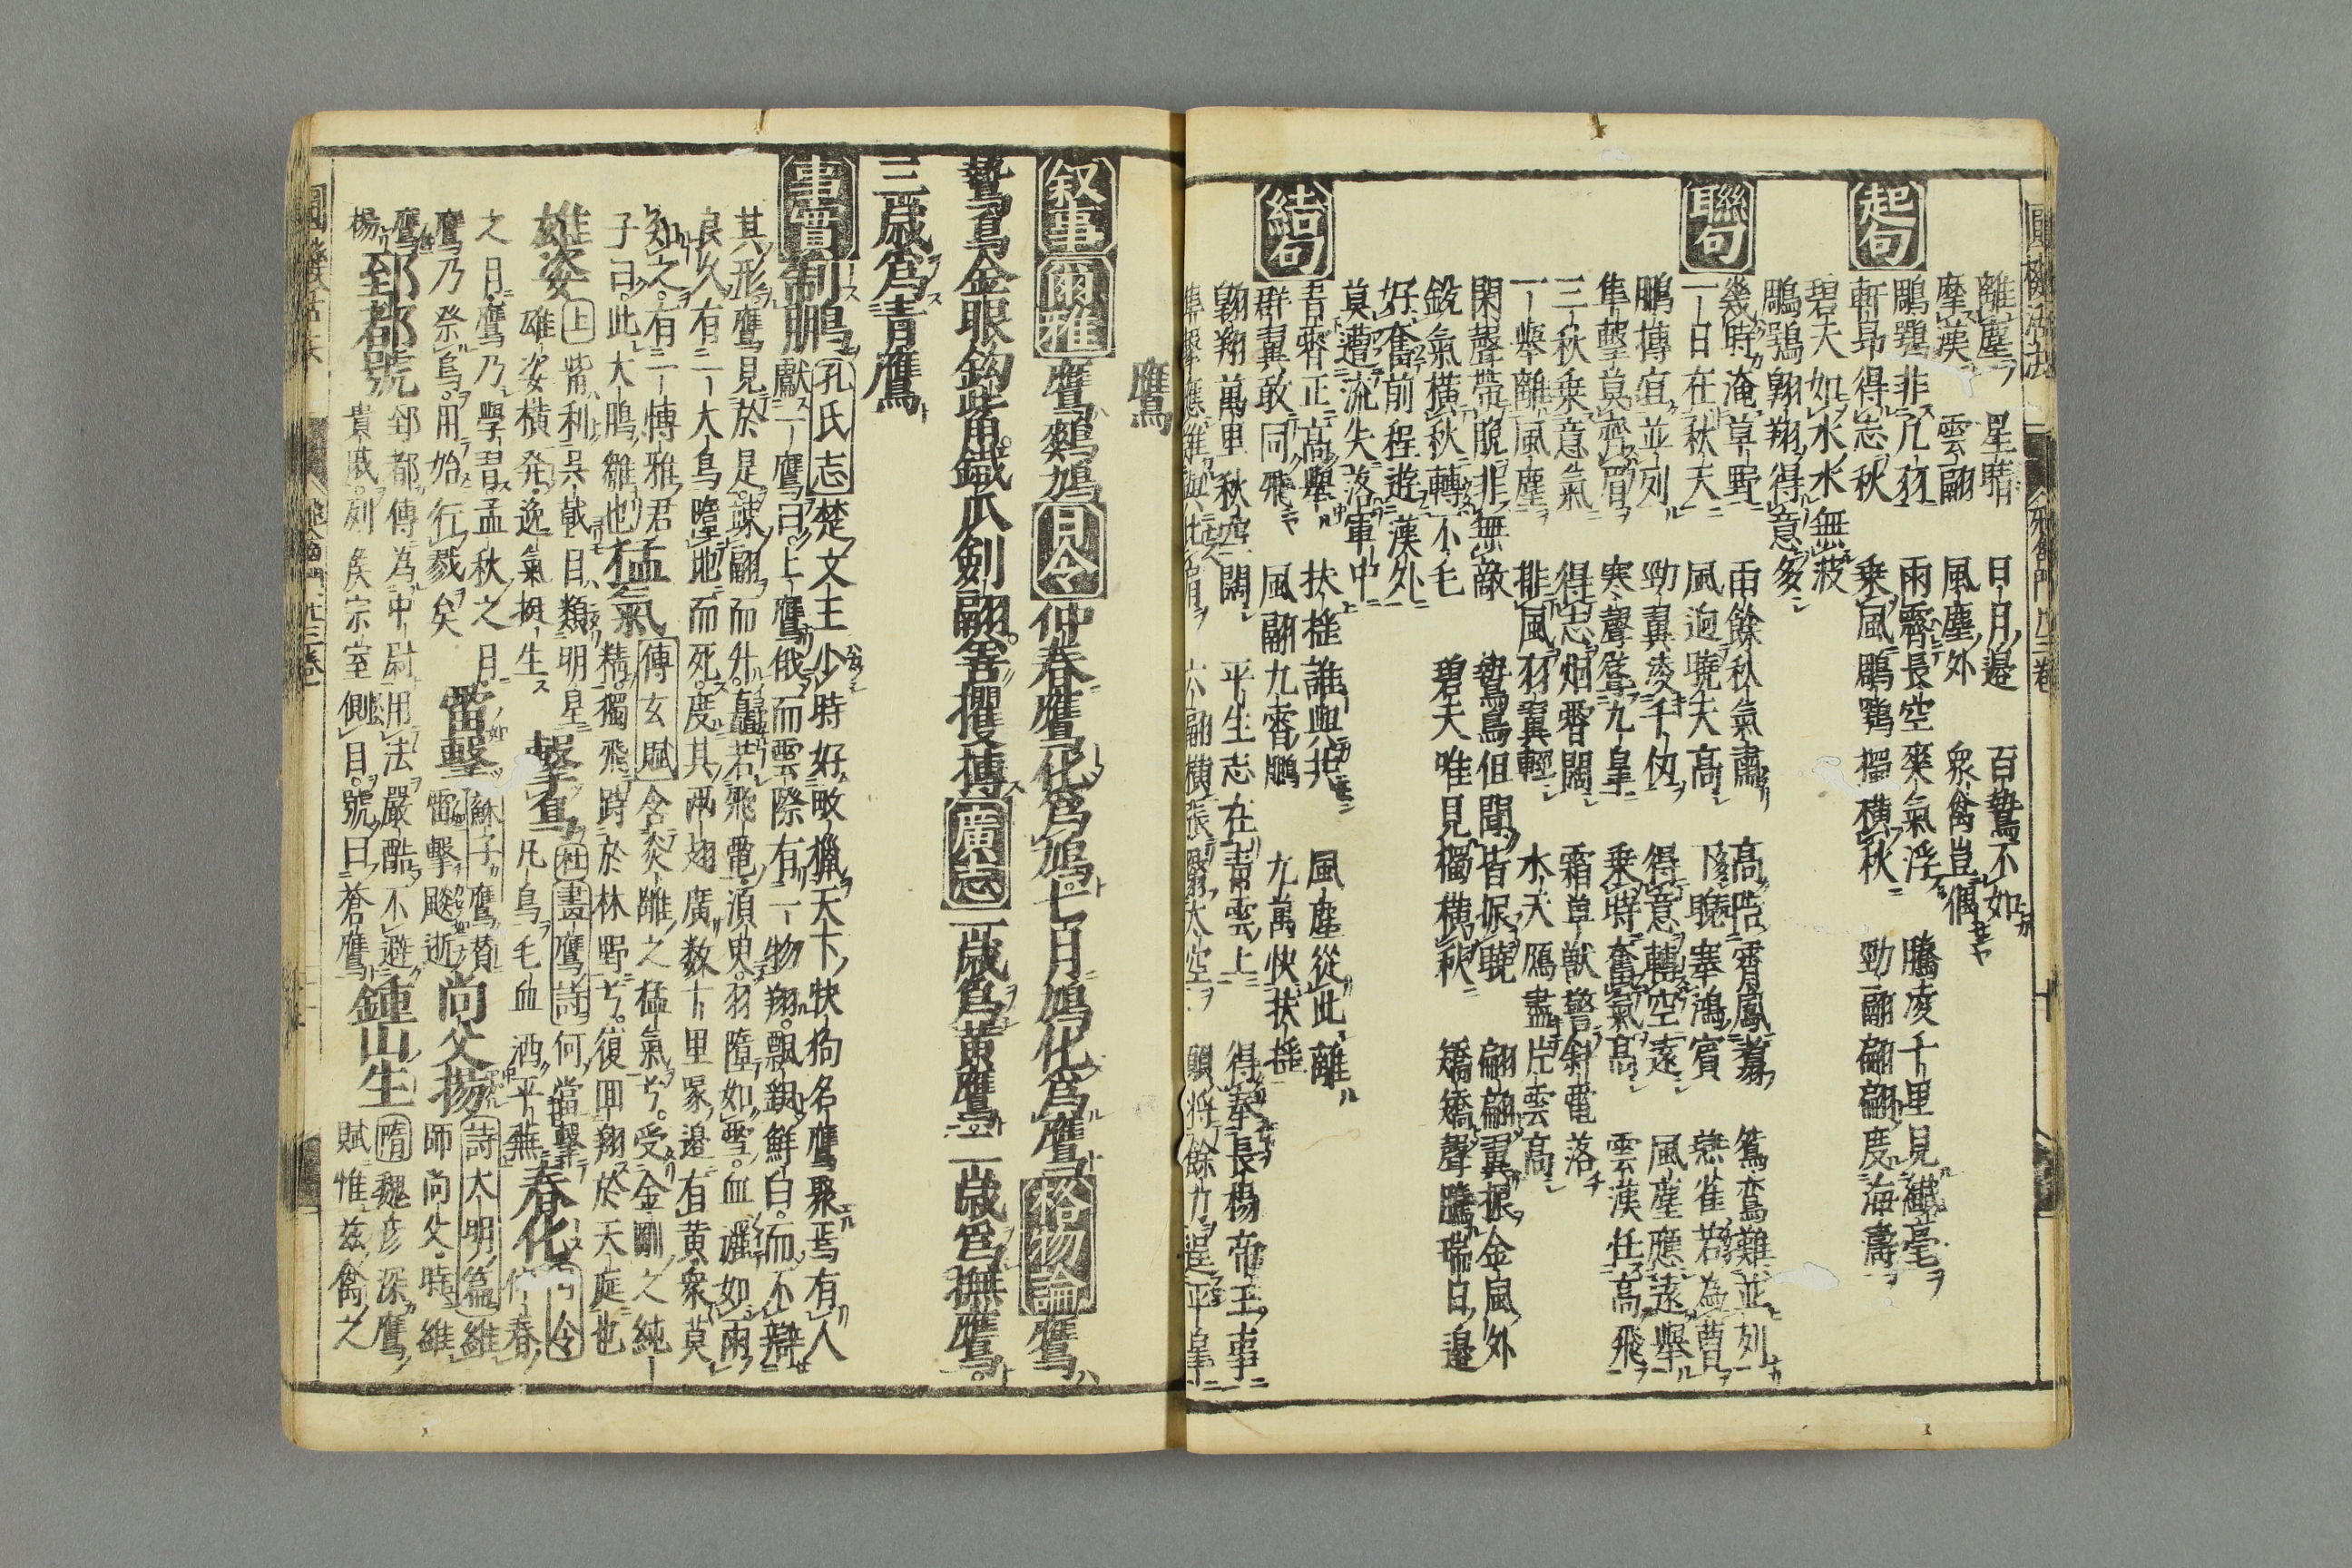 離塵 星晴 日月邊 百鷙不如
摩漢 雲翮 風塵外 衆禽豈偶
起句 鵰鶚非凡羽 雨霽長空爽氣浮 騰凌千里見纎毫
軒昂得志秋 乗風鵰鶚獨横秋 勁翮翩翩度海濤
碧天如水水無波
鵰鶚翱翔得意多
聯句 幾時淹草野 雨餘秋氣肅 高陪霄鳳翥 鴛鸞難並列
一日在秋天 風逈曉天高 下隊塞鴻賓 燕雀若為曹
鵬搏宜並列 勁翼凌千仭 得意轉空遠 風塵應遠擧
隼擊莫齊眉 寒聲登九皐 乗時奮氣高 雲漢任高飛
三秋乗意氣 得志烟霄闊 霜草獣警斜電落
一擧離風塵 排風羽翼輕 水天鴈盡片雲高
閑聲帶晩非無敵 鷙鳥但聞皆捉曉 翩翩翼振金風外
鋭氣橫秋轉不毛 碧天唯見獨横秋 矯矯聲騰瑞日邊
好奮前程遊漢外
莫遭流失落軍中
結句 青霽正高擧 扶揺誰與共 風塵從此離
群翼敢同飛 風翮九霄鵬 九萬快扶揺
翱翔萬里秋空闊 平生志在青雲上 得奉長楊帝王事
隼擧應難與比肩 六翮横張翳太空 願將餘力逞平皐
鷹
叙事 爾雅 鷹鶨鳩 月令 仲春鷹化為鳩七月鳩化為鷹 格物論 鷹
鷙鳥金眼鈎觜鐵爪劍翮善攫搏 廣志 一歳為黄鷹二歳為撫鷹
三歳為青鷹
事實 制鵬 孔氏志 楚文王少時好畋獵天下快狗名鷹聚焉有人
獻一鷹曰上鷹俄而雲際有一物翔飄鋧鮮白而不辯
其形鷹見於是竦翮而升矗若飛電湏臾羽墮如雪血灑如雨
良久有一大鳥墮地而死度其兩翅廣数十里冢邉有黄衆莫
知之有一博雅君 猛氣 傳玄賦 含炎離之猛氣兮受金剛之純
子曰此大鵬雛也 精獨飛跱於林野兮復囬翔於天庭也
雄姿 上 觜利呉戟目類明星 擊鳥 杜 畫鷹詩 何當擊 春化 月令
雄姿横発逸氣挺生 凡鳥毛血洒平蕪 仲春
之日鷹乃學習孟秋之月 雷擊 蘇子鷹賛 尚父揚 詩大明篇 維
鷹乃祭鳥用始行戮矣 雷擊飈逝 師尚父時維
鷹 郅都號 郅都傳為中尉用法嚴酷不避 鍾山生 隋 魏彦深鷹
楊 貴戚列侯宗室側目號曰蒼鷹 賦惟兹禽之